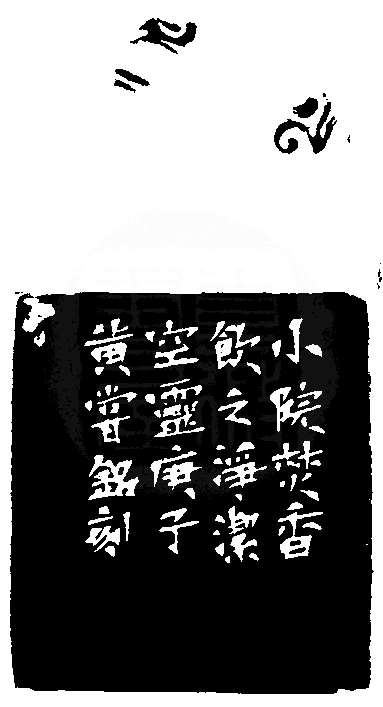 小院焚香
飲之淨潔
空靈庚子
黄嘗銘刻